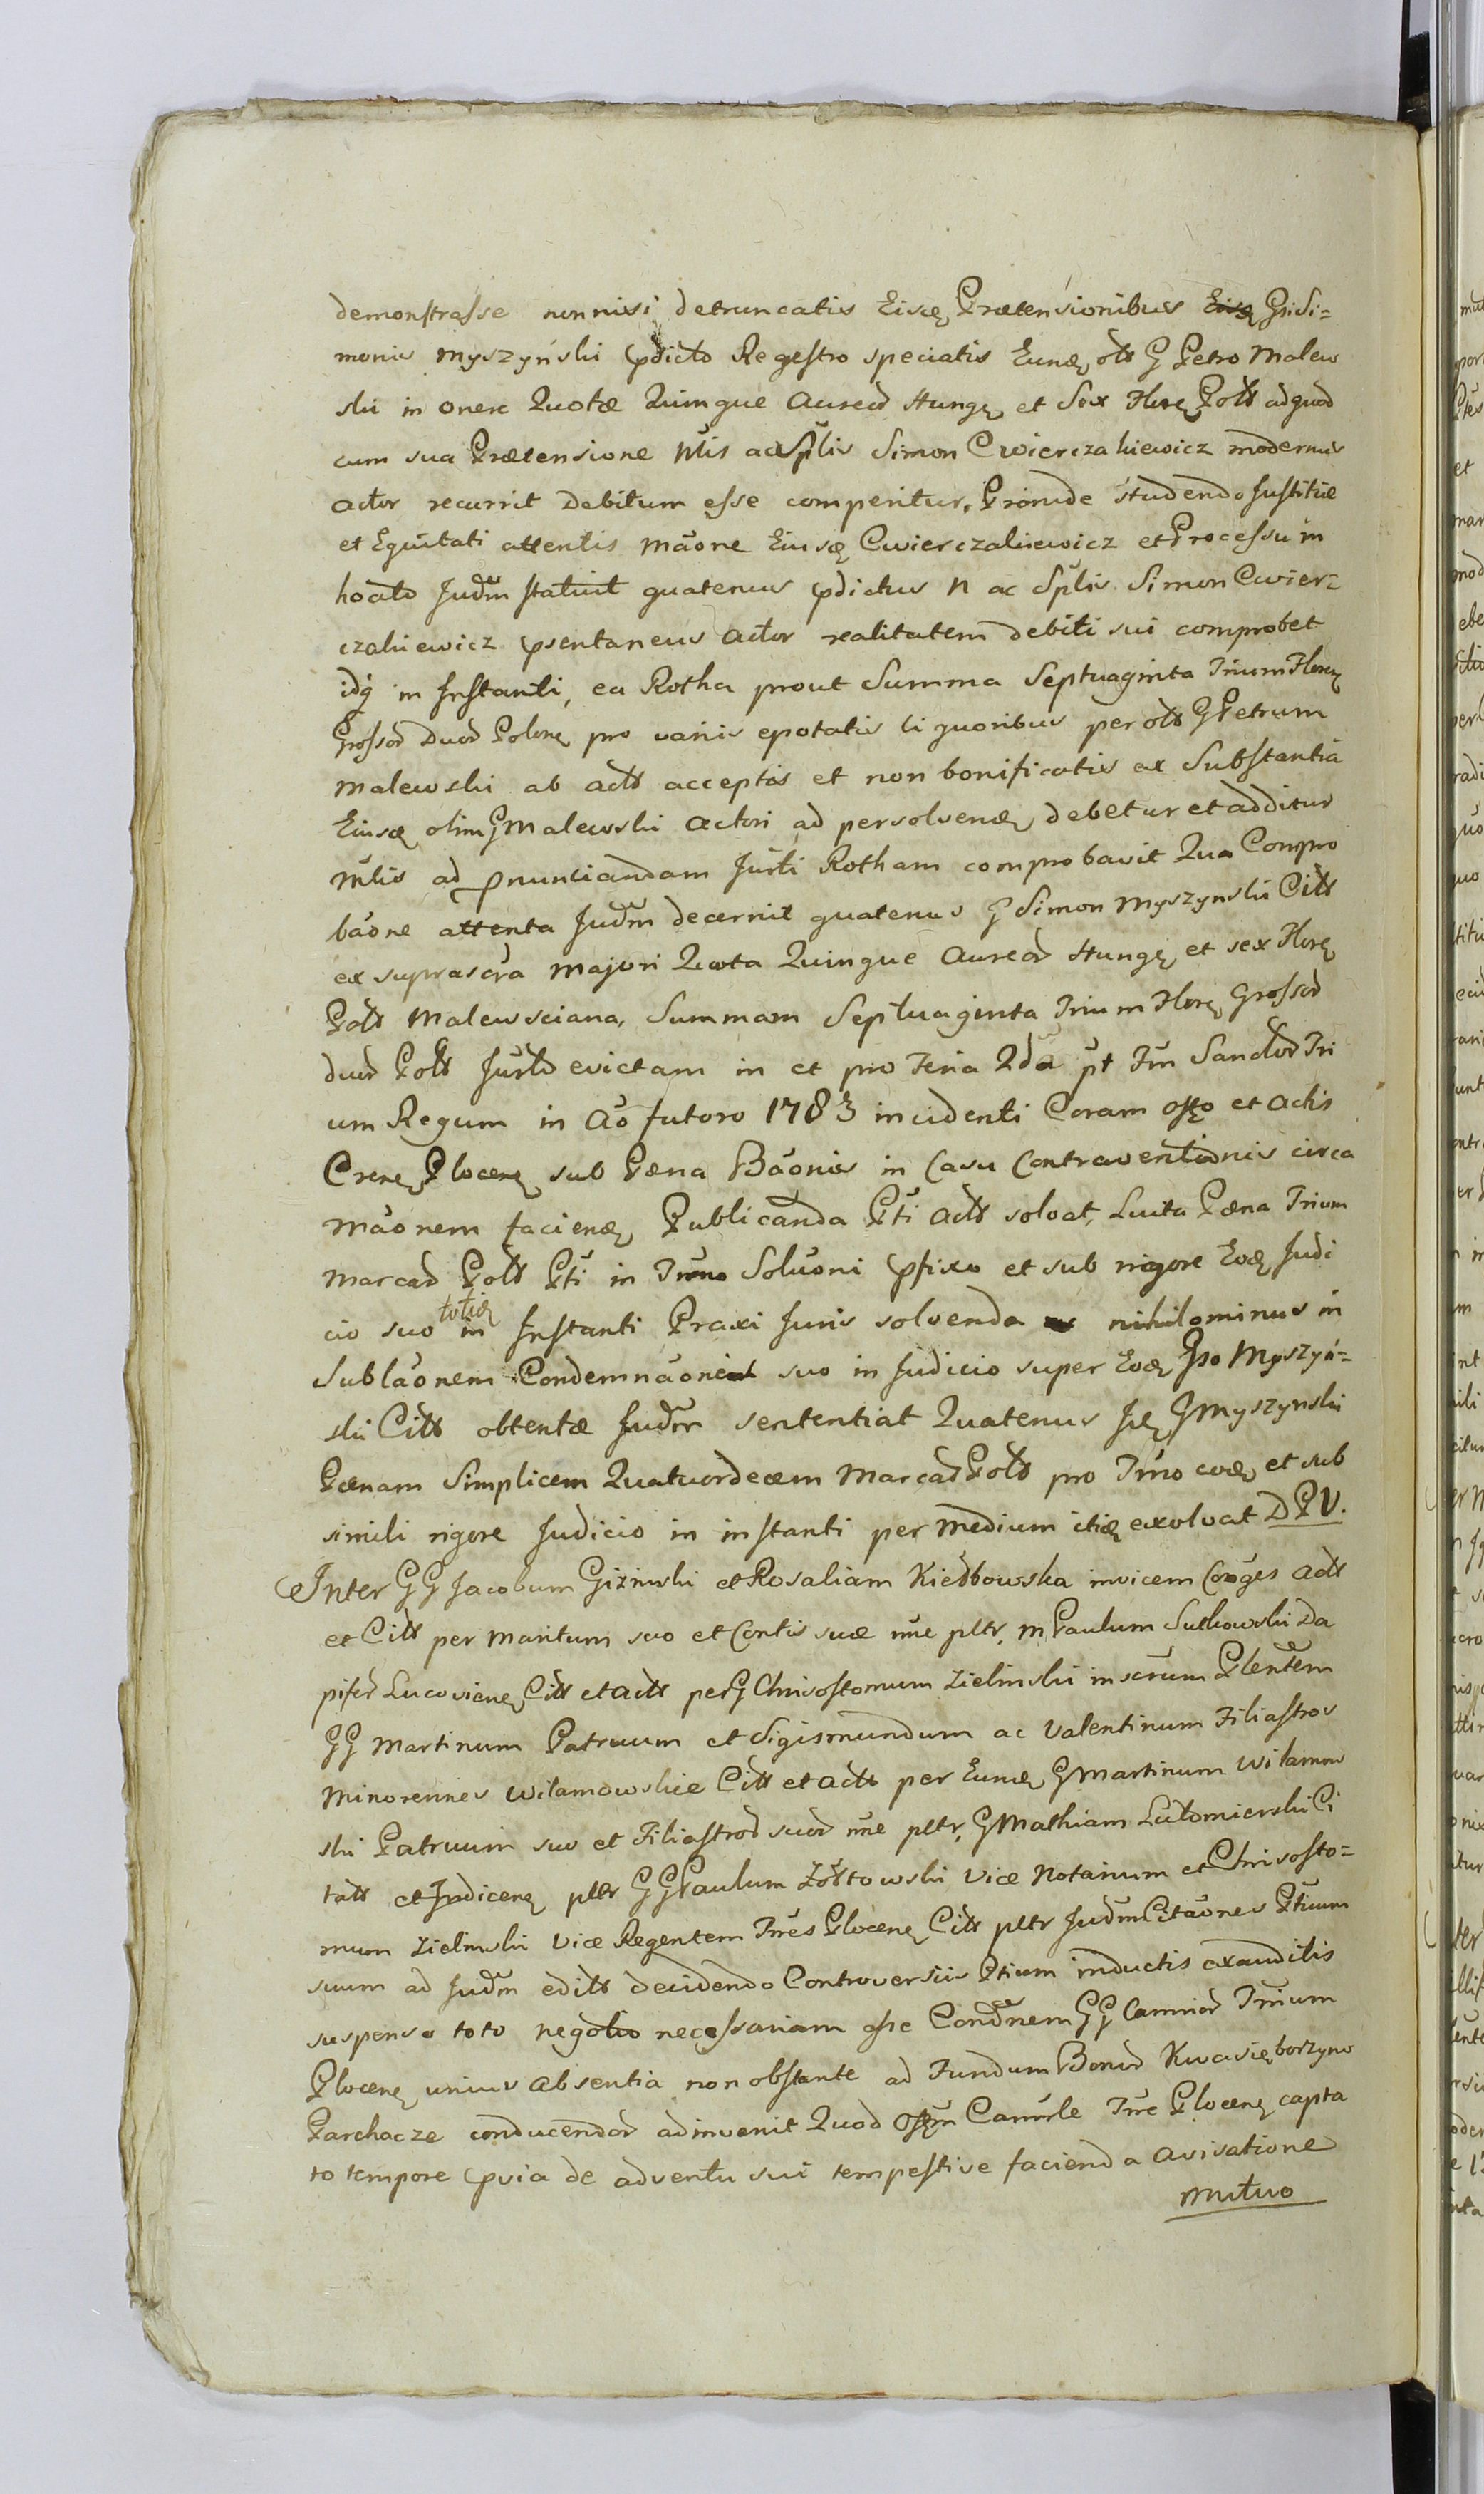 demonstrasse nonnisi detruncatis Eiusę Prætensionibus Gsi Si=
monis Myszyński pdicto Regestro speciatis Eundę olt G Petro Malew
ski in onere Quotæ Quinque Aureor Hungę et Sex Florę Polt ad quod
cum sua Prætensione Nlis ac Splis Simon Cwierczakiewicz modernus
Actor recurrit debitum esse comperitur. Proinde studendo Justitiæ
et Equitati attentis mãone Eiusę Cwierczakiewicz et Processu in
hoato Judm statuit quatenus pdictus N ac Splis Simon Cwier=
czakiewicz psentaneus Actor realitatem debiti sui comprobet
idq in Instanti, ea Rotha prout Summa Septuaginta Trium Florę
Grossor Duor Polonę pro variis epotatis liquoribus per olt G Petrum
Malewski ab Actt acceptis et non bonificatis ex Substantia
Eiusę olim G Malewski Actori ad persolvendę debetur et additur
Nlis ad pnunciandam Jurti Rotham comprobavit Qua Compro
bãone attenta Judm decernit quatenus G Simon Myszynski Citt
ex suprascra majori Quota Quinque Aureor Hungę et sex Florę
Polt Malewsciana, Summam Septuaginta Trium Florę Grossor
duor Polt Jurto evictam in et pro Feria 2da pt Fm Sanctor Tri
um Regum in Ao futuro 1783 incidenti Coram Offo et Actis
Crenę Plocenę sub Pæna Bãonis in Casu Contraventionis circa
mãonem faciendę Publicanda Pti Actt solvat, Luita Pæna Trium
Marcar Polt Pti in Tmno Solvoni pfixo et sub rigore Eodę Judi
cio suo totię in Instanti Praxi Juris solvenda nihilominus in
Sublãonem Condemnãonis suo in Judicio super Eodę Gso Myszyń=
ski Citt obtentæ Judm sententiat Quatenus Idę G Myszynski
Pænam Simplicem Quatuordecem Marcar Polt pro Tmno eodę et sub
simili rigore Judicio in instanti per medium itię exolvat D P V.
Inter GG Jacobum Gizinski et Rosaliam Kiełbowska invicem Conges Actt
et Citt per Maritum suo et Contis suæ nne pltr, M Paulum Sutkowski Da
pifer Lucoviensę Citt et Actt per G Chrisostomum Zielinski inscrum Plentem
GG Martinum Patruum et Sigismundum ac Valentinum Filiastros
Minorennes Witamowskie Citt et Actt per Eundę G Martinum Witamow
ski Patruum suo et Filiastror suor nne pltr, G Mathiam Lutomierski Ci
tatt et Indicenę pltr GG Paulum Żółtowski Vice Notarium et Chrisosto=
mum Zielinski Vice Regentem Tres Plocenę Citt pltr Judm Citãones Ptium
suum ad Judm editt decidendo Controversiis Ptium inductis exauditis
suspenso toto negotio necessariam esse Condnem GG Camrior Trium
Plocenę unius absentia non obstante ad Fundum Bonor Kwasięborzyno
Parchocze conducendor adinvenit Quod Offm Camrle Tre Plocenę capta
to tempore pvia de adventu sui tempestive facienda avisatione
mutuo